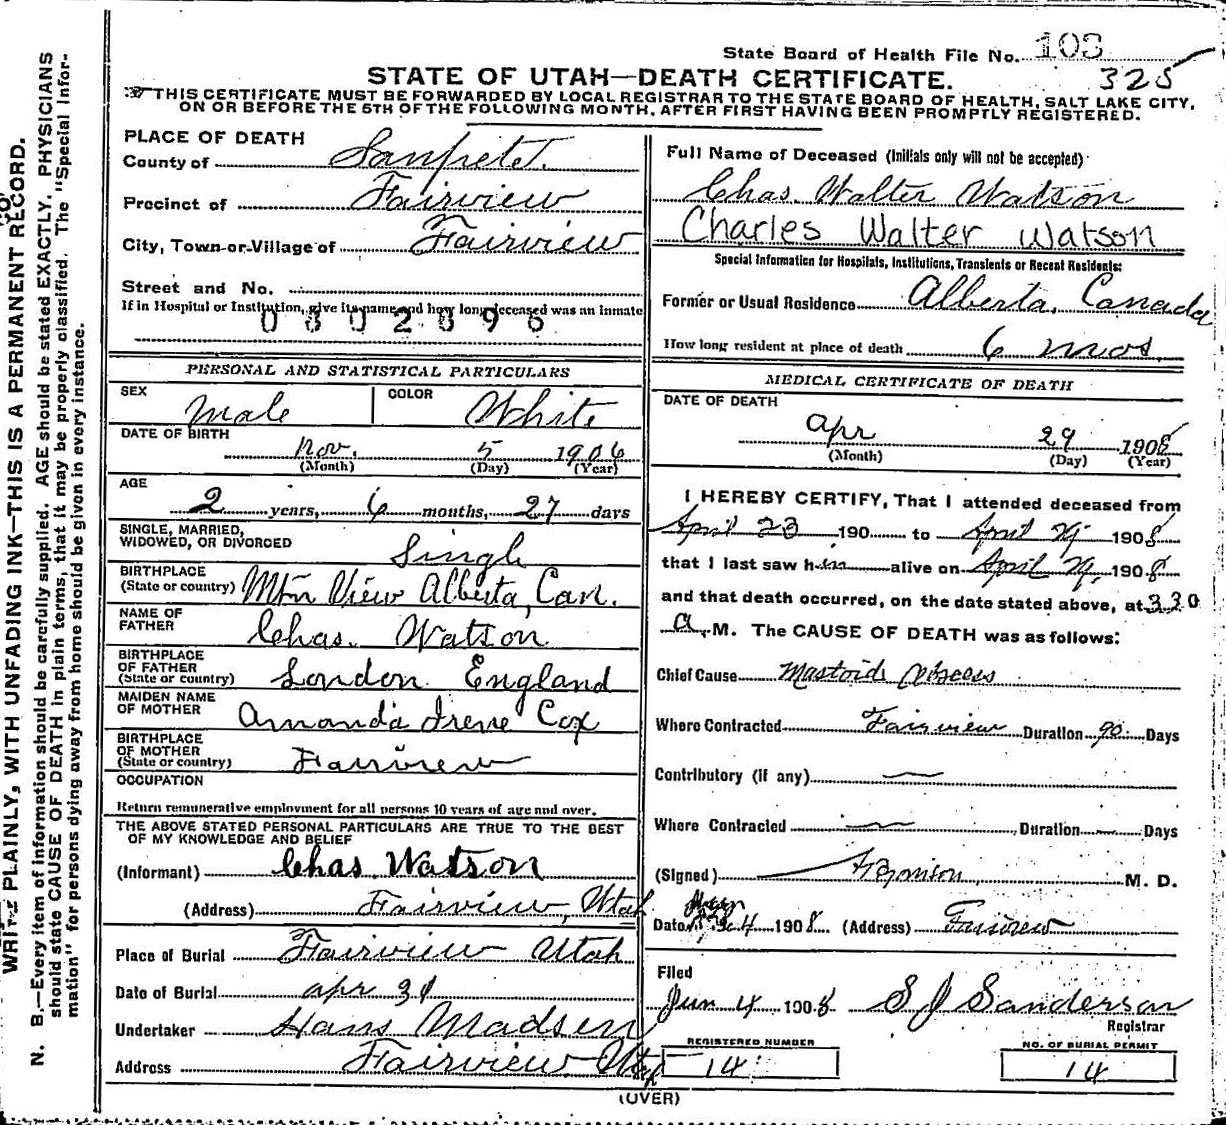 State Board of Health File No. 103
325
STATE OF UTAH—DEATH CERTIFICATE.
THIS CERTIFICATE MUST BE FORWARDED BY LOCAL REGISTRAR TO THE STATE BOARD OF HEALTH, SALT LAKE CITY,
ON OR BEFORE THE 5TH OF THE FOLLOWING MONTH, AFTER FIRST HAVING BEEN PROMPTLY REGISTERED.
WRITE PLAINLY, WITH UNFADING INK—THIS IS A PERMANENT RECORD.
N. B.—Every item of information should be carefully supplied. AGE should be stated EXACTLY. PHYSICIANS
should state CAUSE OF DEATH in plain terms, that it may be properly classified. The "Special Infor-
mation" for persons dying away from home should be given in every instance.
PLACE OF DEATH
County of Sanpete
Precinct of Fairview
City, Town or Village of Fairview
Street and No.
If in Hospital or Institution, give its name and how long deceased was an inmate
PERSONAL AND STATISTICAL PARTICULARS
SEX Male COLOR White
DATE OF BIRTH
Nov. 5 1906
(Month) (Day) (Year)
AGE
2 years, 6 months, 27 days
SINGLE, MARRIED,
WIDOWED, OR DIVORCED Single
BIRTHPLACE
(State or country) Mtn View Alberta, Can.
NAME OF
FATHER Chas. Watson
BIRTHPLACE
OF FATHER
(State or country) London England
MAIDEN NAME
OF MOTHER Amanda Irene Cox
BIRTHPLACE
OF MOTHER
(State or country) Fairview
OCCUPATION
Return remunerative employment for all persons 10 years of age and over.
THE ABOVE STATED PERSONAL PARTICULARS ARE TRUE TO THE BEST
OF MY KNOWLEDGE AND BELIEF
(Informant) Chas. Watson
(Address) Fairview, Utah
Place of Burial Fairview Utah
Date of Burial apr 31
Undertaker Hans Madsen
Address Fairview Utah
Full Name of Deceased (Initials only will not be accepted)
Chas. Walter Watson
Charles Walter Watson
Special Information for Hospitals, Institutions, Transients or Recent Residents:
Former or Usual Residence Alberta, Canada
How long resident at place of death 6 mos.
MEDICAL CERTIFICATE OF DEATH
DATE OF DEATH
Apr 29 1908
(Month) (Day) (Year)
I HEREBY CERTIFY, That I attended deceased from
April 23 190 to April 29 1908
that I last saw him alive on April 29, 1908
and that death occurred, on the date stated above, at 3 30
a. M. The CAUSE OF DEATH was as follows:
Chief Cause Mastoid Abscess
Where Contracted Fairview Duration 90 Days
Contributory (if any) —
Where Contracted — Duration — Days
(Signed) M. D.
Date 4 1908 (Address) Fairview
Filed
Jun 4 1908 S J Sanderson
Registrar
REGISTERED NUMBER
14
NO. OF BURIAL PERMIT
14
(OVER)